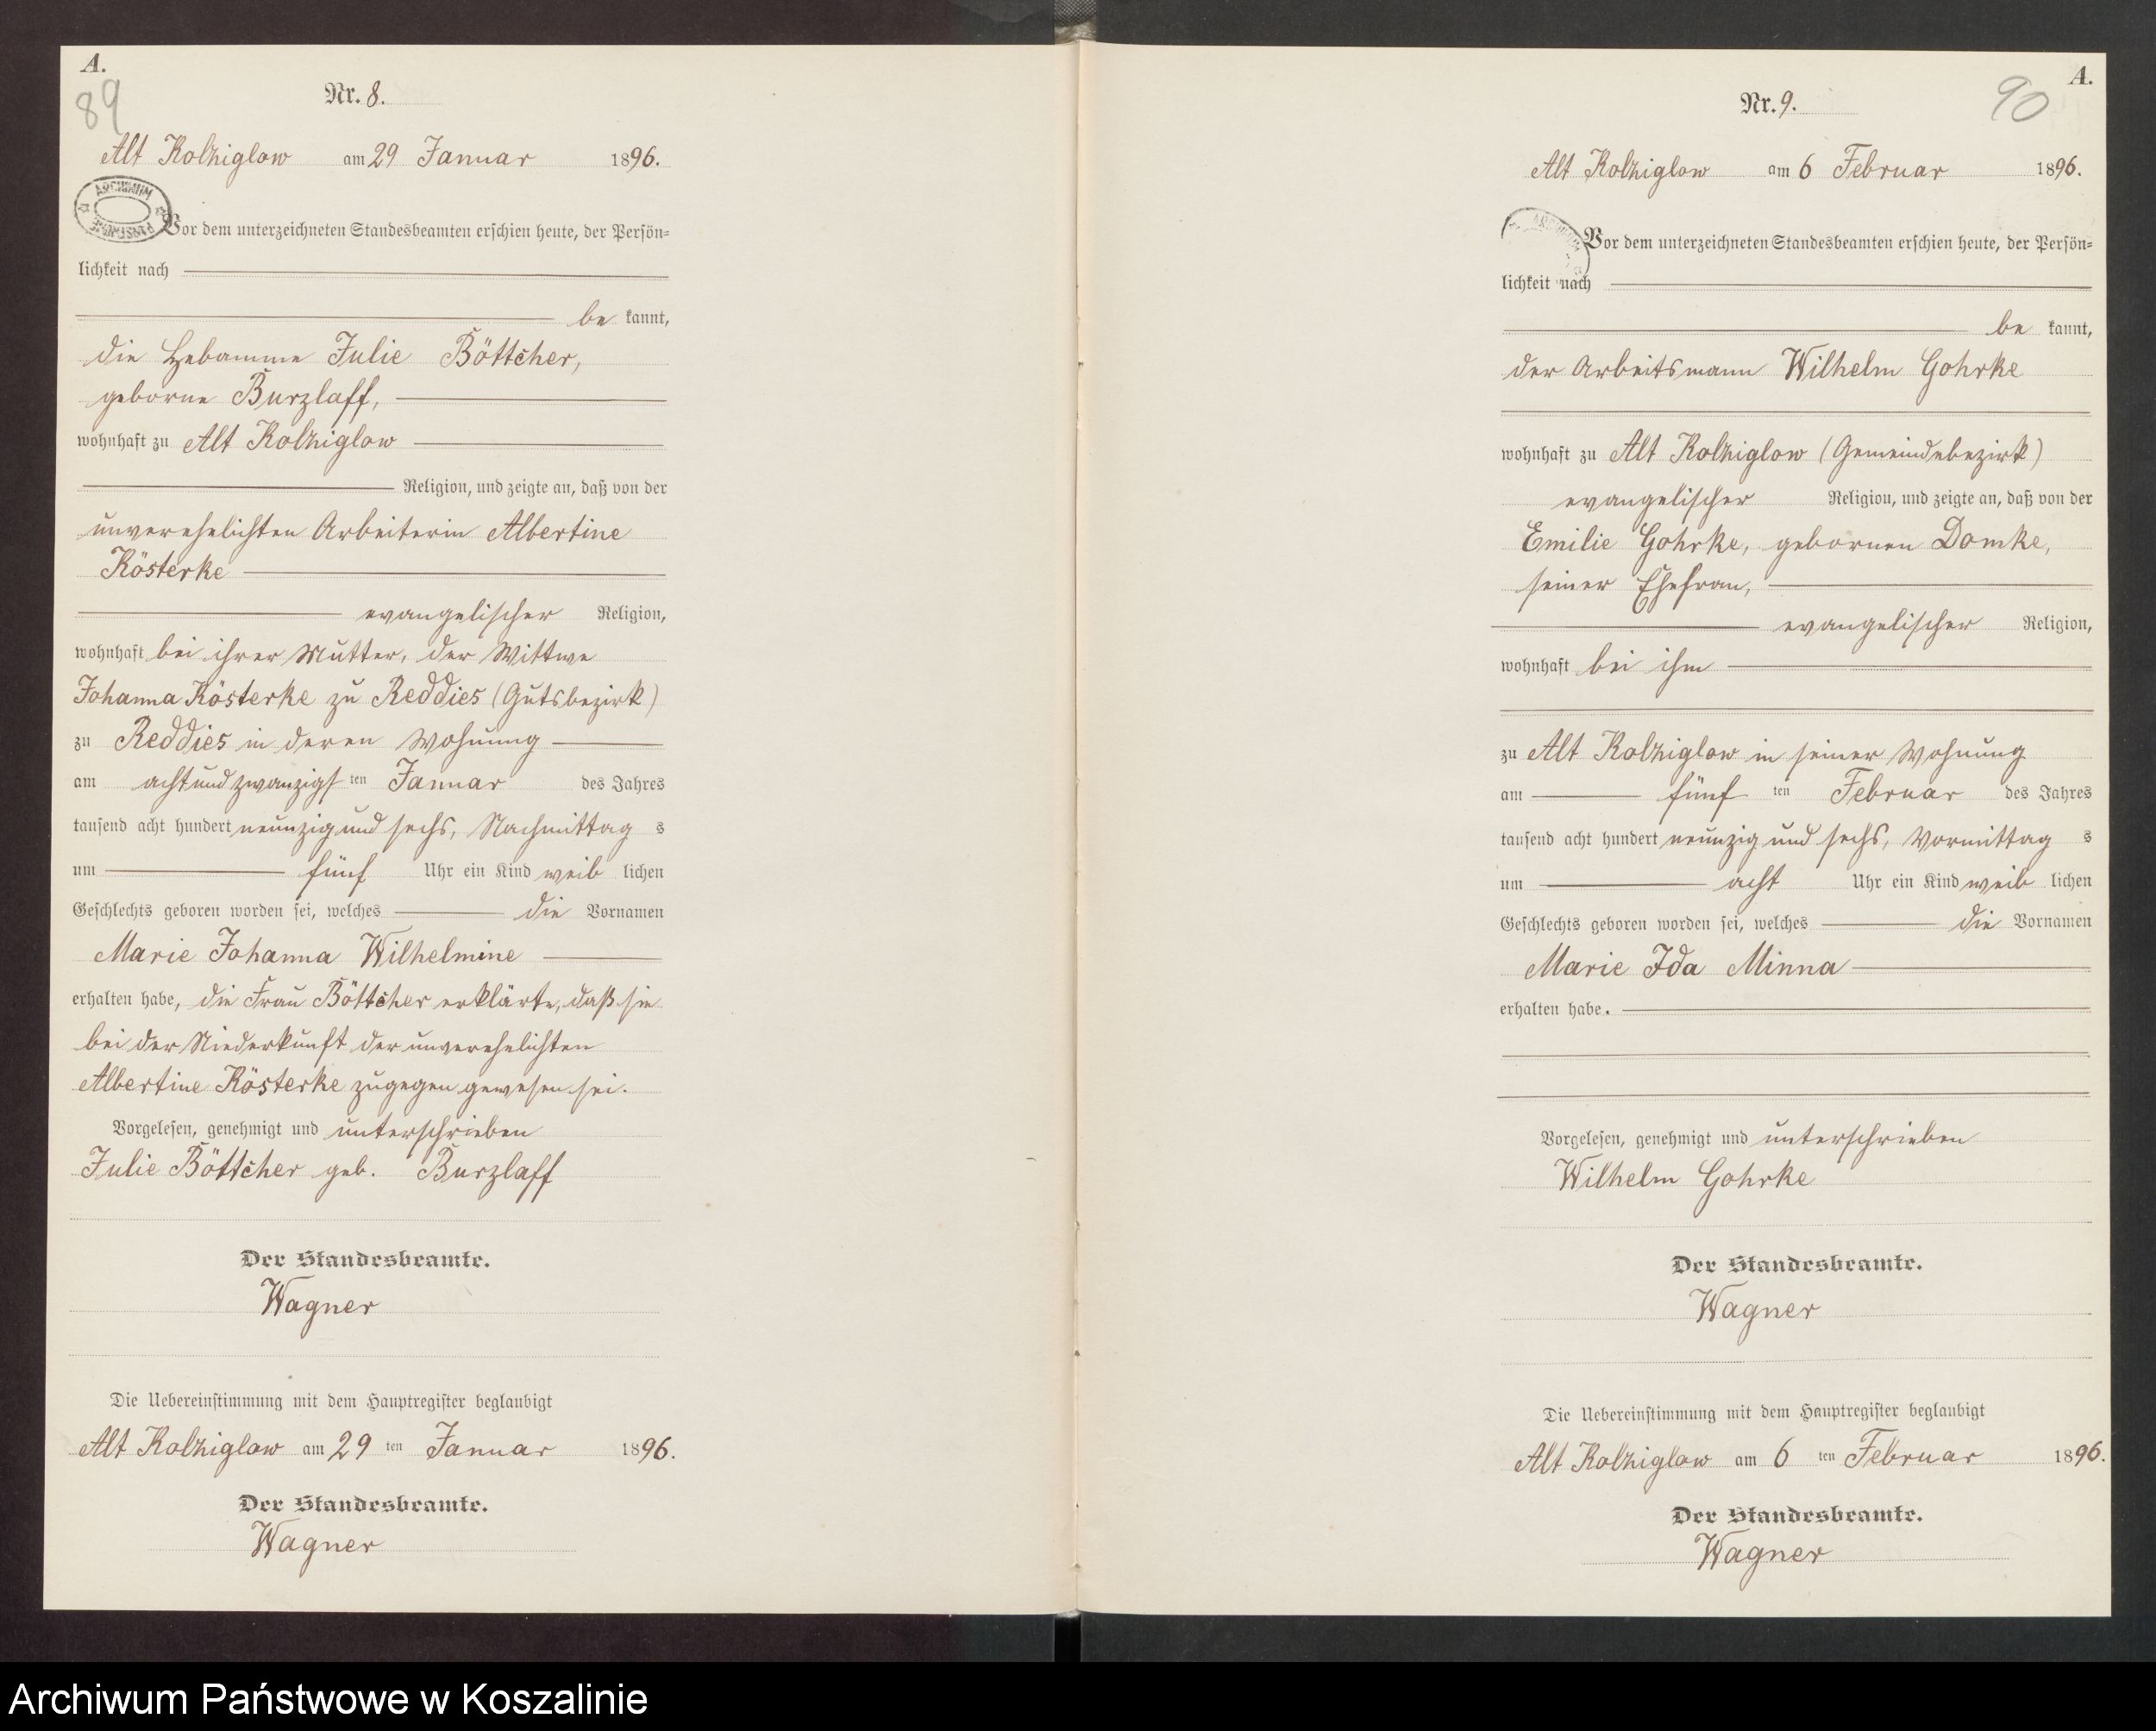 A.
89
Nr. 8.
Alt Kolziglow am 29 Januar 1896.
ARCHIWUM
Vor dem unterzeichneten Standesbeamten erschien heute, der Persön=
lichkeit nach
be kannt,
die Hebamme Julie Böttcher,
geborne Burzlaff,
wohnhaft zu Alt Kolziglow
Religion, und zeigte an, daß von der
unverehelichten Arbeiterin Albertine
Kösterke
evangelischer Religion,
wohnhaft bei ihrer Mutter, der Wittwe
Johanna Kösterke zu Reddies (Gutsbezirk)
zu Reddies in deren Wohnung
am acht und zwanzigs ten Januar des Jahres
tausend acht hundert neunzig und sechs, Nachmittag s
um fünf Uhr ein Kind weib lichen
Geschlechts geboren worden sei, welches die Vornamen
Marie Johanna Wilhelmine
erhalten habe, die Frau Böttcher erklärte, daß sie
bei der Niederkunft der unverehelichten
Albertine Kösterke zugegen gewesen sei.
Vorgelesen, genehmigt und unterschrieben
Julie Böttcher geb. Burzlaff
Der Standesbeamte.
Wagner
Die Uebereinstimmung mit dem Hauptregister beglaubigt
Alt Kolziglow am 29 ten Januar 1896.
Der Standesbeamte.
Wagner
A.
90
Nr. 9.
Alt Kolziglow am 6 Februar 1896.
Vor dem unterzeichneten Standesbeamten erschien heute, der Persön=
lichkeit nach
be kannt,
der Arbeitsmann Wilhelm Gohrke
wohnhaft zu Alt Kolziglow (Gemeindebezirk)
evangelischer Religion, und zeigte an, daß von der
Emilie Gohrke, gebornen Domke,
seiner Ehefrau,
evangelischer Religion,
wohnhaft bei ihm
zu Alt Kolziglow in seiner Wohnung
am fünf ten Februar des Jahres
tausend acht hundert neunzig und sechs, Vormittag s
um acht Uhr ein Kind weib lichen
Geschlechts geboren worden sei, welches die Vornamen
Marie Ida Minna
erhalten habe.
Vorgelesen, genehmigt und unterschrieben
Wilhelm Gohrke
Der Standesbeamte.
Wagner
Die Uebereinstimmung mit dem Hauptregister beglaubigt
Alt Kolziglow am 6 ten Februar 1896.
Der Standesbeamte.
Wagner
Archiwum Państwowe w Koszalinie